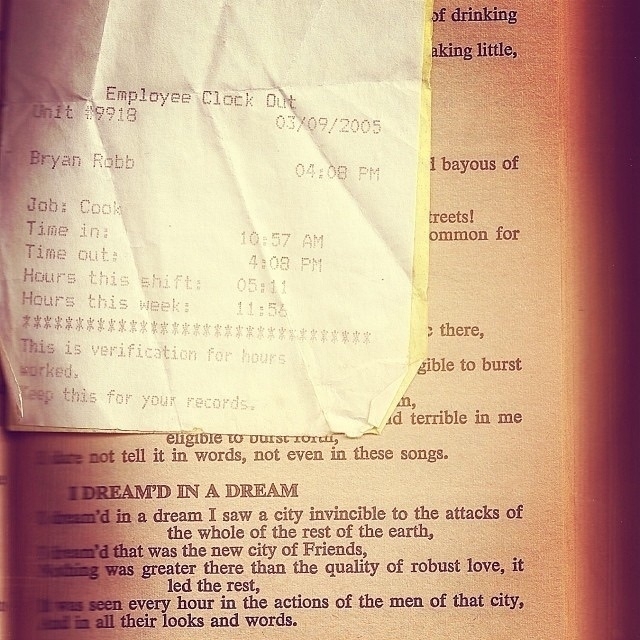 of drinking
aking little,
Employee Clock Out
Unit #9918
03/09/2005
Bryan Robb
04:08 PM
d bayous of
Job: Cook
treets!
Time in: 10:57 AM
ommon for
Time out: 4:08 PM
Hours this shift: 05:11
Hours this week: 11:56
*********************************
there,
This is verification for hours
worked.
gible to burst
Keep this for your records.
m,
nd terrible in me
eligible to burst forth,
I dare not tell it in words, not even in these songs.
I DREAM'D IN A DREAM
I dream'd in a dream I saw a city invincible to the attacks of
the whole of the rest of the earth,
I dream'd that was the new city of Friends,
Nothing was greater there than the quality of robust love, it
led the rest,
It was seen every hour in the actions of the men of that city,
And in all their looks and words.